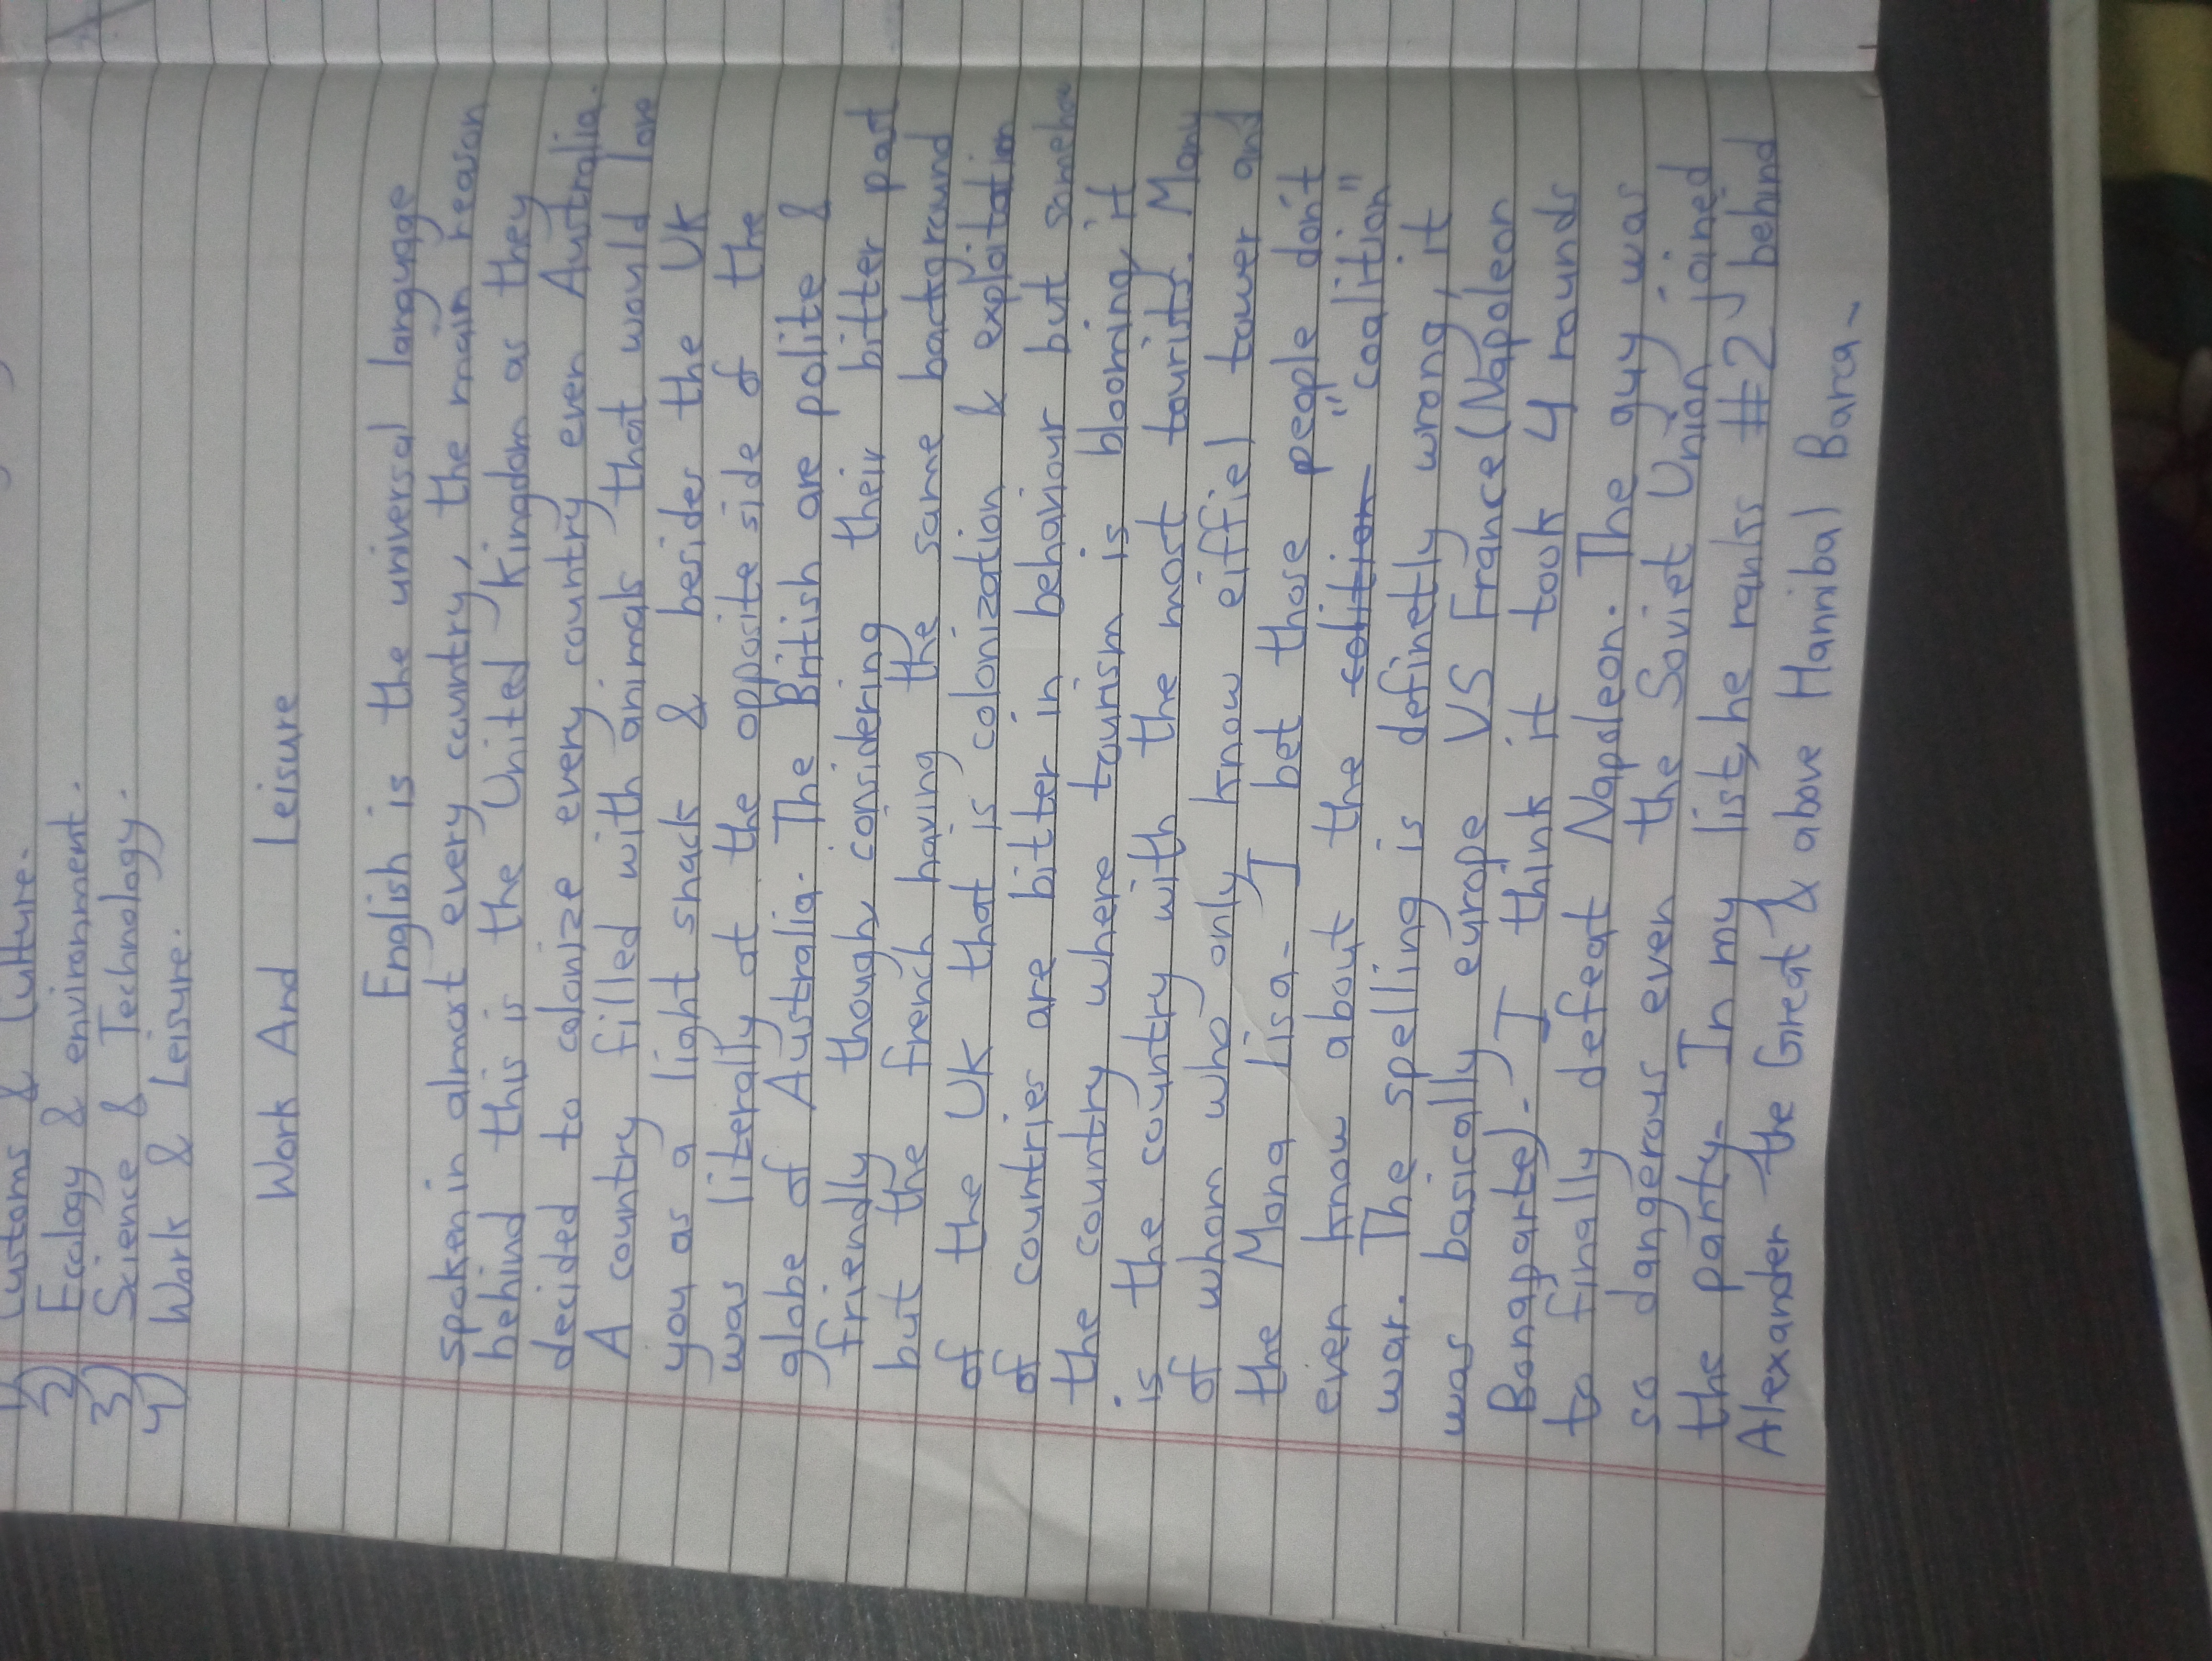 1) Customs & Culture.
2) Ecology & environment.
3) Science & Technology.
4) Work & Leisure.
Work And Leisure
English is the universal language
spoken in almost every country, the main reason
behind this is the United Kingdom as they
decided to colonize every country even Australia.
A country filled with animals that would love
you as a light snack & besides the UK
was literally at the opposite side of the
globe of Australia. The British are polite &
friendly though considering their bitter past
but the french having the same background
of the UK that is colonization & exploitation
of countries are bitter in behaviour but somehow
the country where tourism is blooming, it
is the country with the most tourists. Many
of whom who only know eiffiel tower and
the Mona lisa. I bet those people don't
even know about the colition "coalition"
war. The spelling is definetly wrong, it
was basically europe VS France (Napoleon
Bonaparte). I think it took 4 rounds
to finally defeat Napoleon. The guy was
so dangerous even the Soviet Union joined
the party. In my list, he ranks #2 behind
Alexander the Great & above Hannibal Barca.